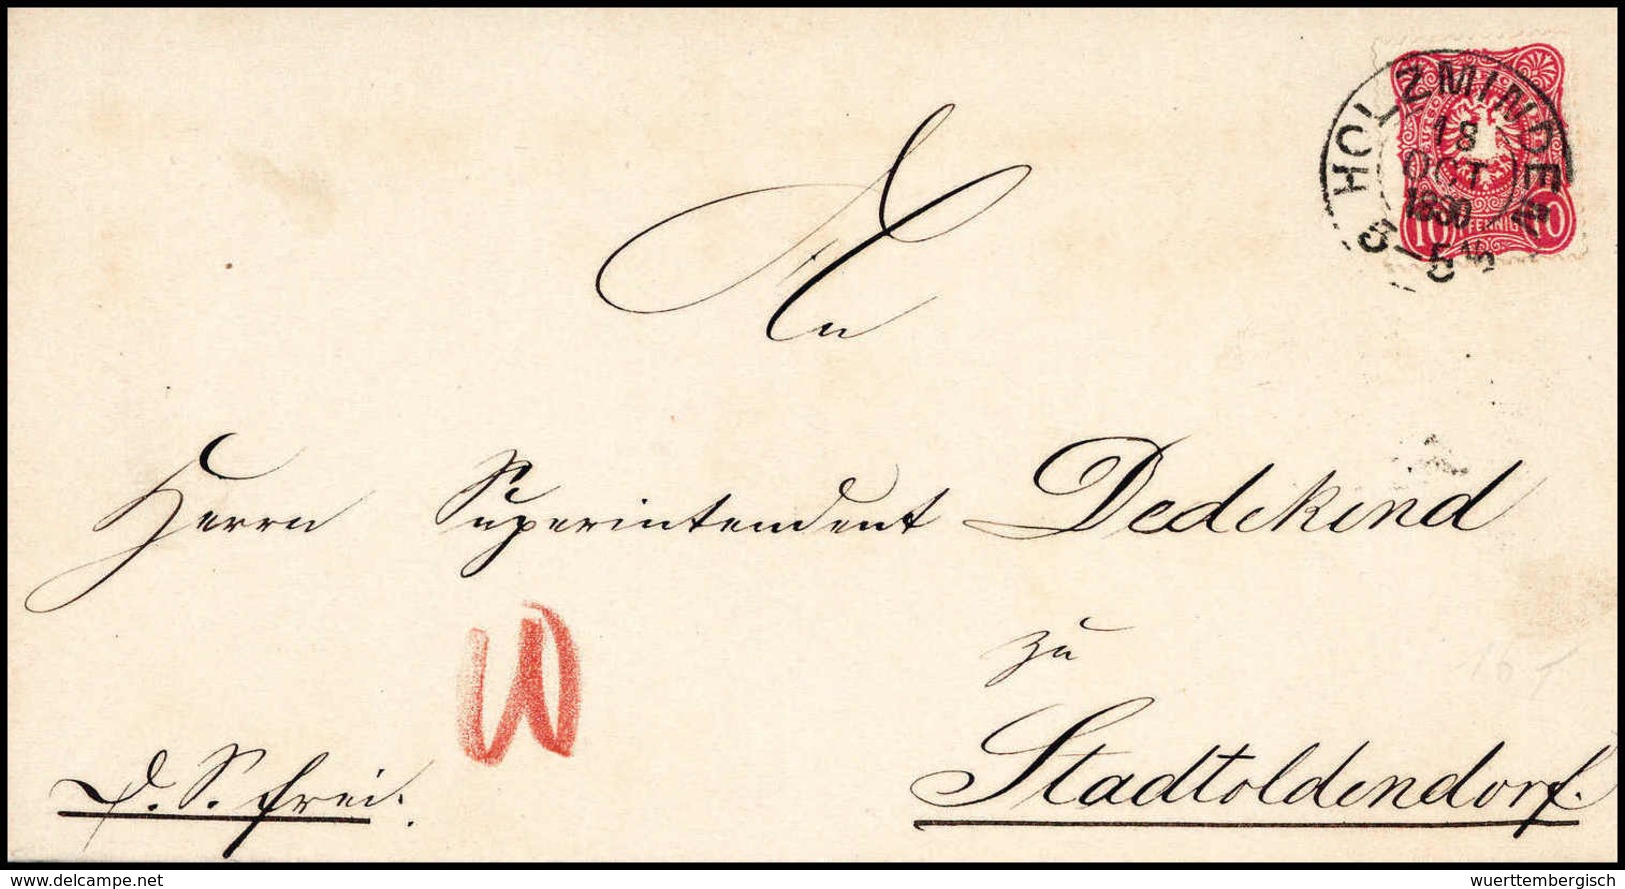 HOLZMINDEN
18
OCT
1880
5-6 N
10 PFENNIG 10
An
Herrn Superintendent Dedekind
zu
Stadtoldendorf.
d. S. frei.
© ak-ansichtskarten.de
wuerttembergisch